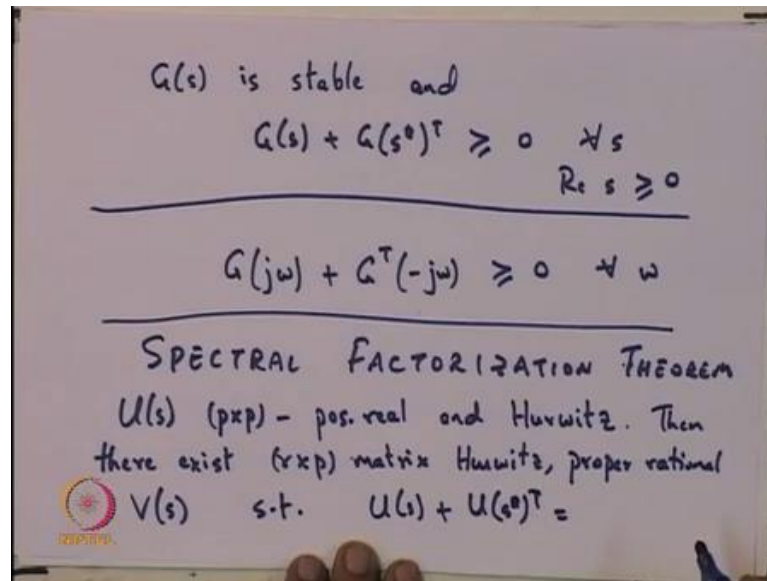 G(s) is stable and
G(s) + G(s*)ᵀ ≥ 0 ∀ s
Re s ≥ 0
G(jω) + Gᵀ(-jω) ≥ 0 ∀ ω
SPECTRAL FACTORIZATION THEOREM
U(s) (p×p) - pos. real and Hurwitz. Then
there exist (r×p) matrix Hurwitz, proper rational
V(s) s.t. U(s) + U(s*)ᵀ =
NPTEL